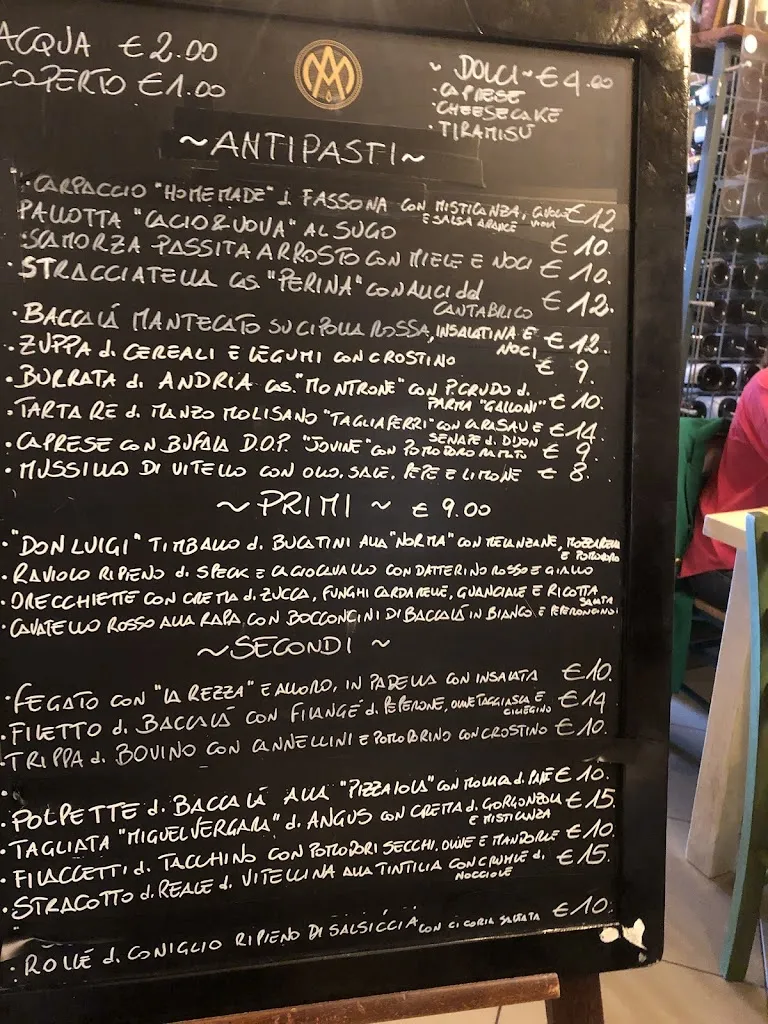 ACQUA € 2.00
COPERTO € 1.00
~ DOLCI ~ € 4.00
• CAPRESE
• CHEESECAKE
• TIRAMISÚ
~ ANTIPASTI ~
• CARPACCIO "HOMEMADE" d. FASSONA CON MISTICANZA, CAVOLO € 12
E SALSA ARANCE VIOLA
PALLOTTA "CACIO&UOVA" AL SUGO € 10.
• SCAMORZA PASSITA ARROSTO CON MIELE E NOCI € 10.
• STRACCIATELLA CAS. "PERINA" CON ALICI del € 12.
CANTABRICO
• BACCALÁ MANTECATO SU CIPOLLA ROSSA, INSALATINA E € 12.
NOCI
• ZUPPA d. CEREALI E LEGUMI CON CROSTINO € 9.
• BURRATA d. ANDRIA CAS. "MONTRONE" CON P. CRUDO d. € 10.
PARMA "GALLONI"
• TARTARE d. MANZO MOLISANO "TAGLIAFERRI" CON CARASAU E € 14
SENAPE d. DIJON
• CAPRESE CON BUFALA D.O.P. "JOVINE" CON POMODORO € 9
• MUSSILLO DI VITELLO CON OLIO, SALE, PEPE E LIMONE € 8.
~ PRIMI ~ € 9.00
• "DON LUIGI" TIMBALLO d. BUCATINI ALLA "NORMA" CON MELANZANE, MOZZARELLA
E POMODORO
• RAVIOLO RIPIENO d. SPECK E CACIOCAVALLO CON DATTERINO ROSSO E GIALLO
• ORECCHIETTE CON CREMA d. ZUCCA, FUNGHI CARDARELLE, GUANCIALE E RICOTTA
SALATA
• CAVATELLO ROSSO ALLA RAPA CON BOCCONCINI DI BACCALÀ IN BIANCO E PEPERONCINO
~ SECONDI ~
• FEGATO CON "LA REZZA" E ALLORO, IN PADELLA CON INSALATA € 10.
• FILETTO d. BACCALÀ CON FILANGÉ d. PEPERONE, OLIVE TAGGIASCA E € 14
CILIEGINO
• TRIPPA d. BOVINO CON CANNELLINI E POMODORINO CON CROSTINO € 10.
• POLPETTE d. BACCALÀ ALLA "PIZZAIOLA" CON MOLLICA d. PANE € 10.
• TAGLIATA "MIGUEL VERGARA" d. ANGUS CON CREMA d. GORGONZOLA € 15.
E MISTICANZA
• FILACCETTI d. TACCHINO CON POMODORI SECCHI, OLIVE E MANDORLE € 10.
• STRACOTTO d. REALE d. VITELLINA ALLA TINTILIA CON CRUMBLE d. € 15.
NOCCIOLE
• ROLLÉ d. CONIGLIO RIPIENO DI SALSICCIA CON CICORIA SALTATA € 10.